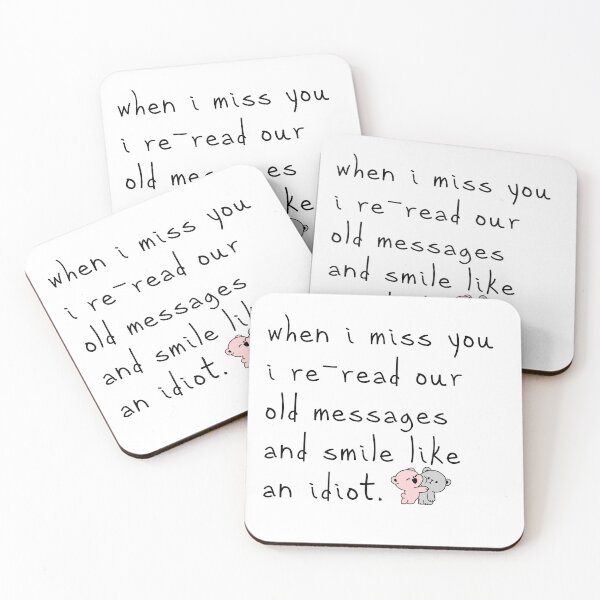 when i miss you
i re-read our
old
when i miss you
i re-read our
old messages
and smile like
when i miss you
i re-read our
old messages
and smile
an idiot.
when i miss you
i re-read our
old messages
and smile like
an idiot.